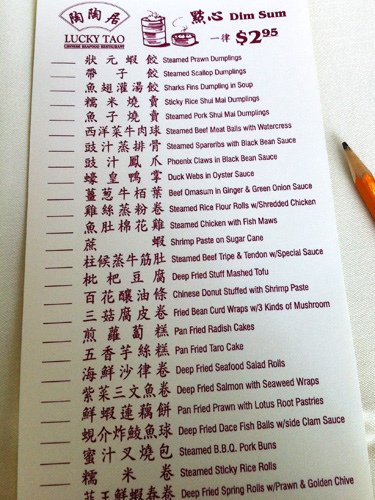 陶陶居
LUCKY TAO
CHINESE SEAFOOD RESTAURANT
點心 Dim Sum
一律 $2.95
狀元蝦餃 Steamed Prawn Dumplings
帶子餃 Steamed Scallop Dumplings
魚翅灌湯餃 Sharks Fins Dumpling in Soup
糯米燒賣 Sticky Rice Shui Mai Dumplings
魚子燒賣 Steamed Pork Shui Mai Dumplings
西洋菜牛肉球 Steamed Beef Meat Balls with Watercress
豉汁蒸排骨 Steamed Spareribs with Black Bean Sauce
豉汁鳳爪 Phoenix Claws in Black Bean Sauce
蠔皇鴨掌 Duck Webs in Oyster Sauce
薑葱牛栢葉 Beef Omasum in Ginger & Green Onion Sauce
雞絲蒸粉卷 Steamed Rice Flour Rolls w/Shredded Chicken
魚肚棉花雞 Steamed Chicken with Fish Maws
蔗蝦 Shrimp Paste on Sugar Cane
柱候蒸牛筋肚 Steamed Beef Tripe & Tendon w/Special Sauce
枇杷豆腐 Deep Fried Stuff Mashed Tofu
百花釀油條 Chinese Donut Stuffed with Shrimp Paste
三菇腐皮卷 Fried Bean Curd Wraps w/3 Kinds of Mushroom
煎蘿蔔糕 Pan Fried Radish Cakes
五香芋絲糕 Pan Fried Taro Cake
海鮮沙律卷 Deep Fried Seafood Salad Rolls
紫菜三文魚卷 Deep Fried Salmon with Seaweed Wraps
鮮蝦蓮藕餅 Pan Fried Prawn with Lotus Root Pastries
蜆介炸鯪魚球 Deep Fried Dace Fish Balls w/side Clam Sauce
蜜汁叉燒包 Steamed B.B.Q. Pork Buns
糯米卷 Steamed Sticky Rice Rolls
韮王鮮蝦春卷 Deep Fried Spring Rolls w/Prawn & Golden Chive